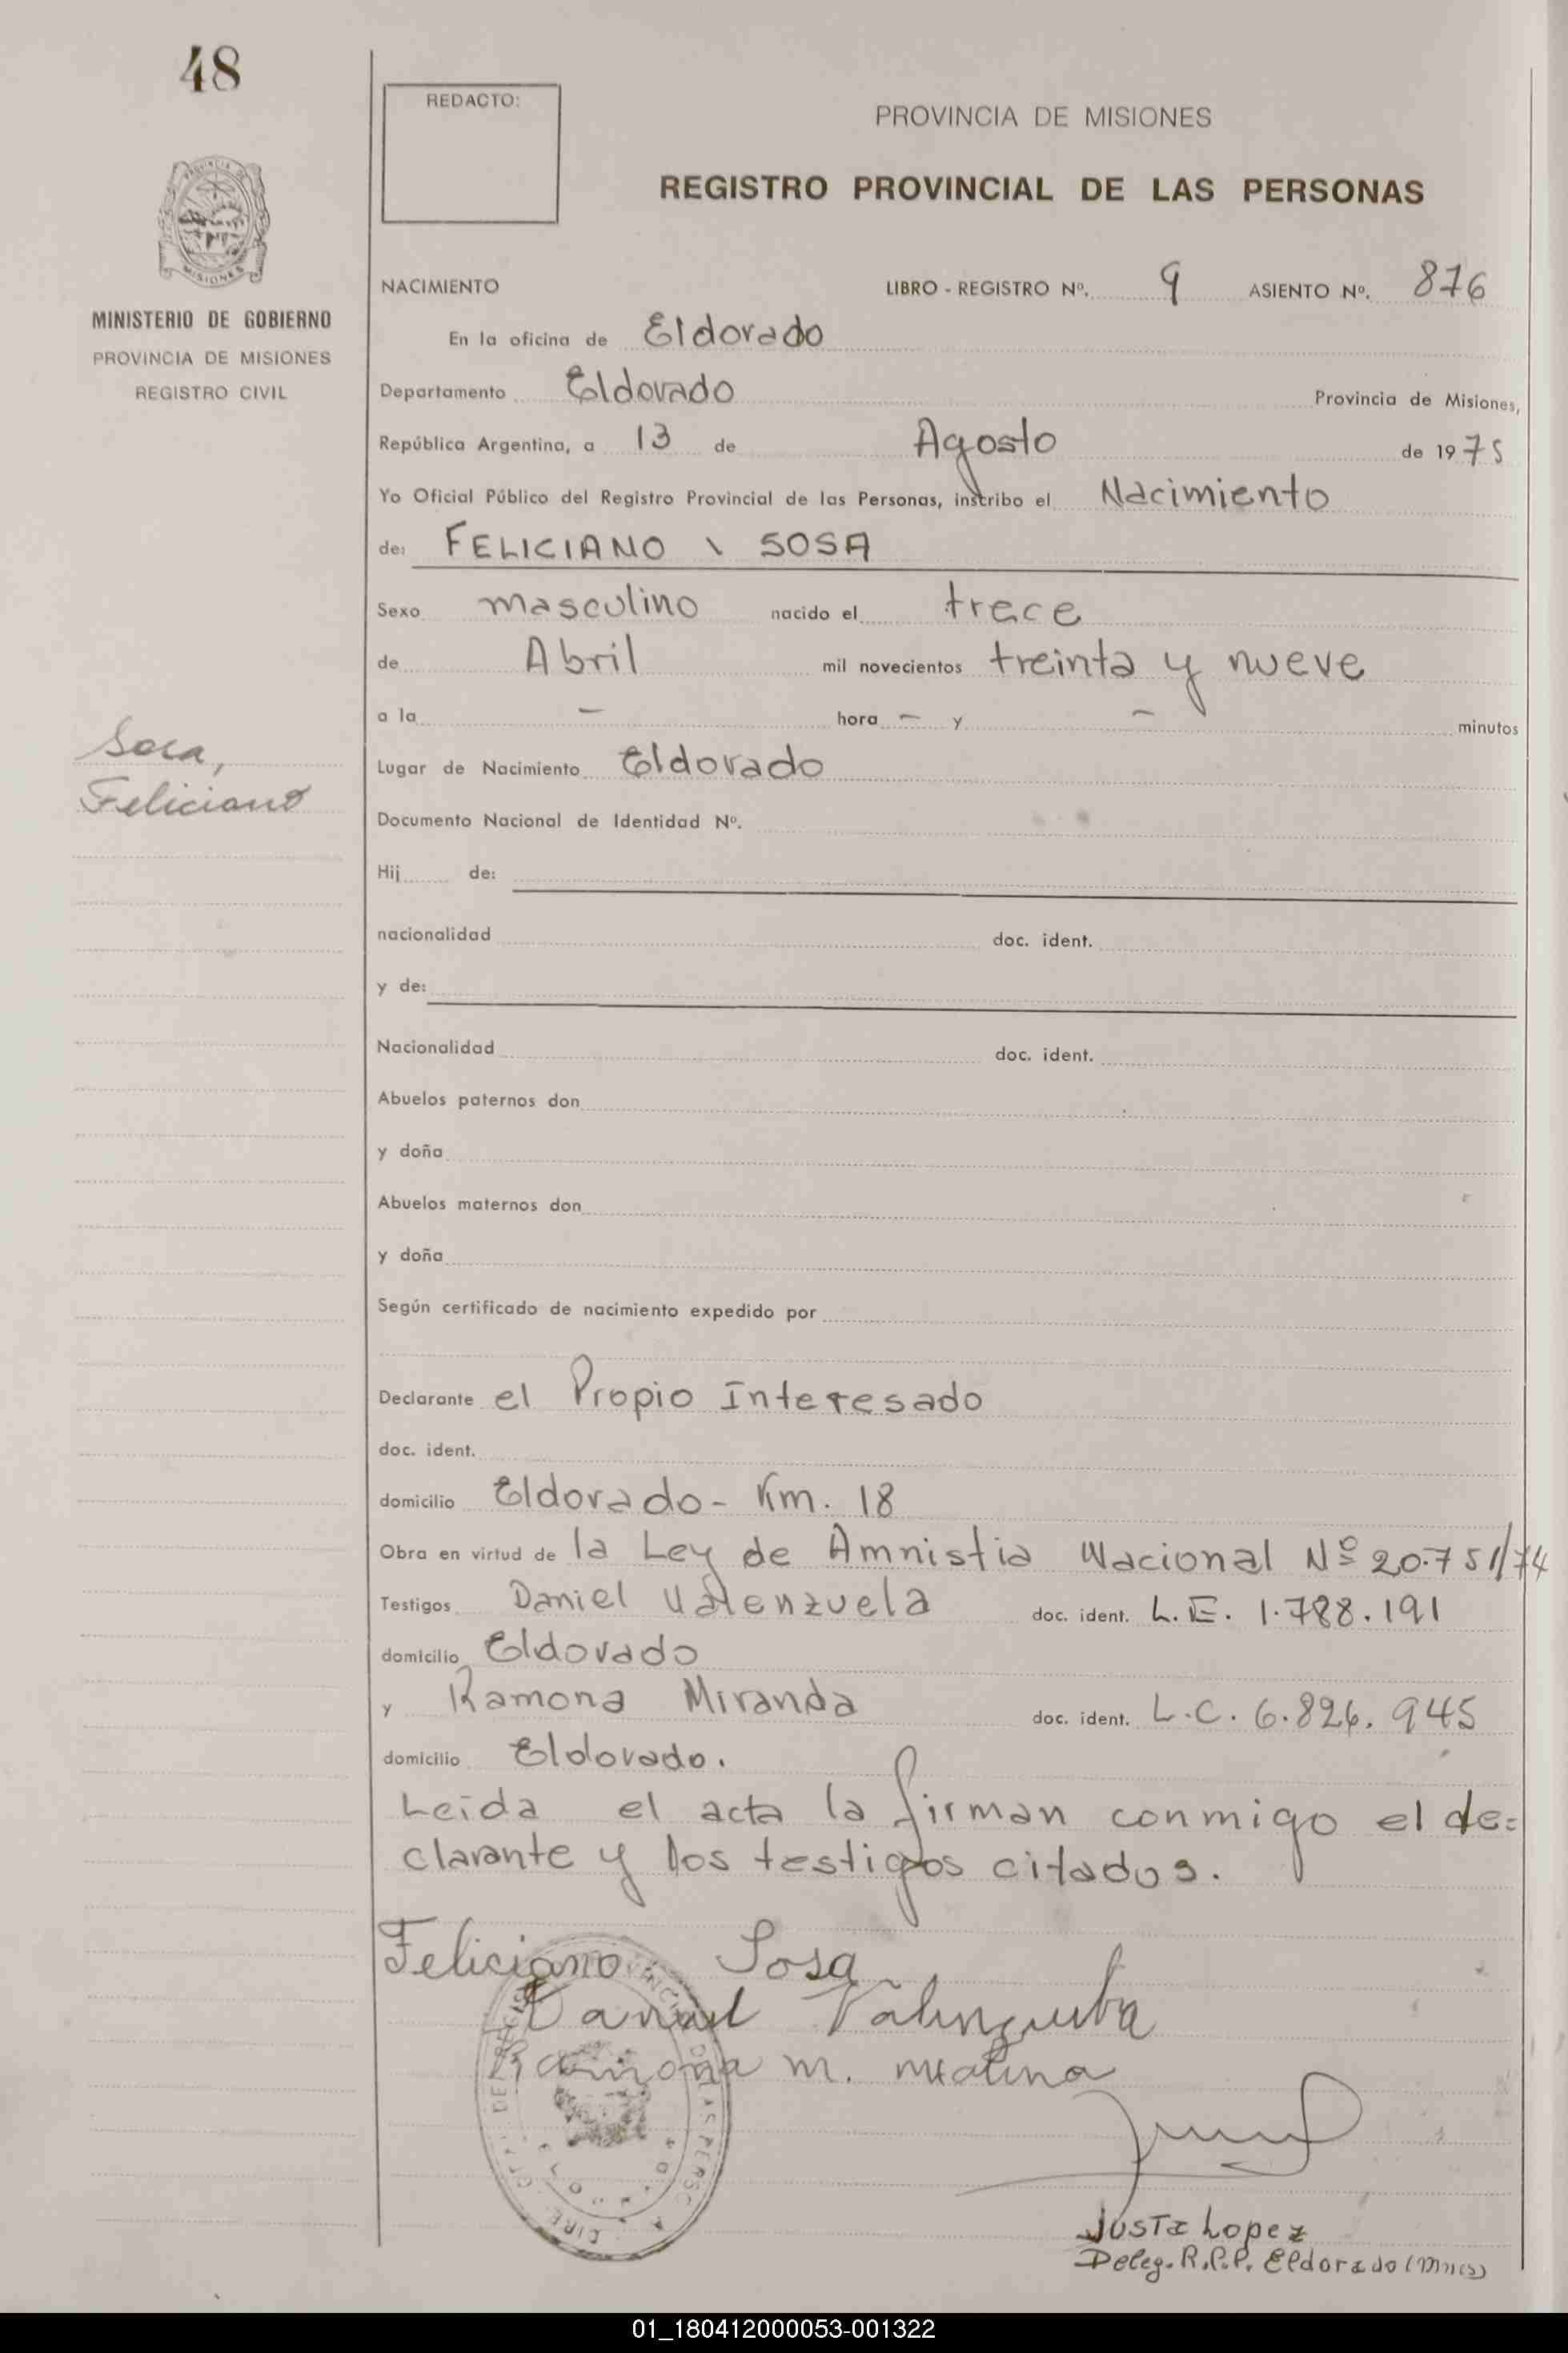 48
REDACTO:
PROVINCIA DE MISIONES
REGISTRO PROVINCIAL DE LAS PERSONAS
MISIONES
MINISTERIO DE GOBIERNO
PROVINCIA DE MISIONES
REGISTRO CIVIL
NACIMIENTO LIBRO - REGISTRO Nº. 9 ASIENTO Nº. 876
En la oficina de Eldorado
Departamento Eldorado Provincia de Misiones,
República Argentina, a 13 de Agosto de 1975
Yo Oficial Público del Registro Provincial de las Personas, inscribo el Nacimiento
de: FELICIANO \ SOSA
Sexo masculino nacido el trece
de Abril mil novecientos treinta y nueve
a la - hora - y - minutos
Sosa,
Feliciano
Lugar de Nacimiento Eldorado
Documento Nacional de Identidad Nº.
Hij de:
nacionalidad doc. ident.
y de:
Nacionalidad doc. ident.
Abuelos paternos don
y doña
Abuelos maternos don
y doña
Según certificado de nacimiento expedido por
Declarante el Propio Interesado
doc. ident.
domicilio Eldorado - Km. 18
Obra en virtud de la Ley de Amnistia Nacional Nº 20.751/74
Testigos Daniel Valenzuela doc. ident. L.E. 1.788.191
domicilio Eldorado
y Ramona Miranda doc. ident. L.C. 6.826.945
domicilio Eldorado.
Leida el acta la firman conmigo el de=
clarante y los testigos citados.
Feliciano Sosa
Daniel Valenzuela
Ramona M.
Justa Lopez
Deleg. R.P.P. Eldorado (Mnes)
01_180412000053-001322